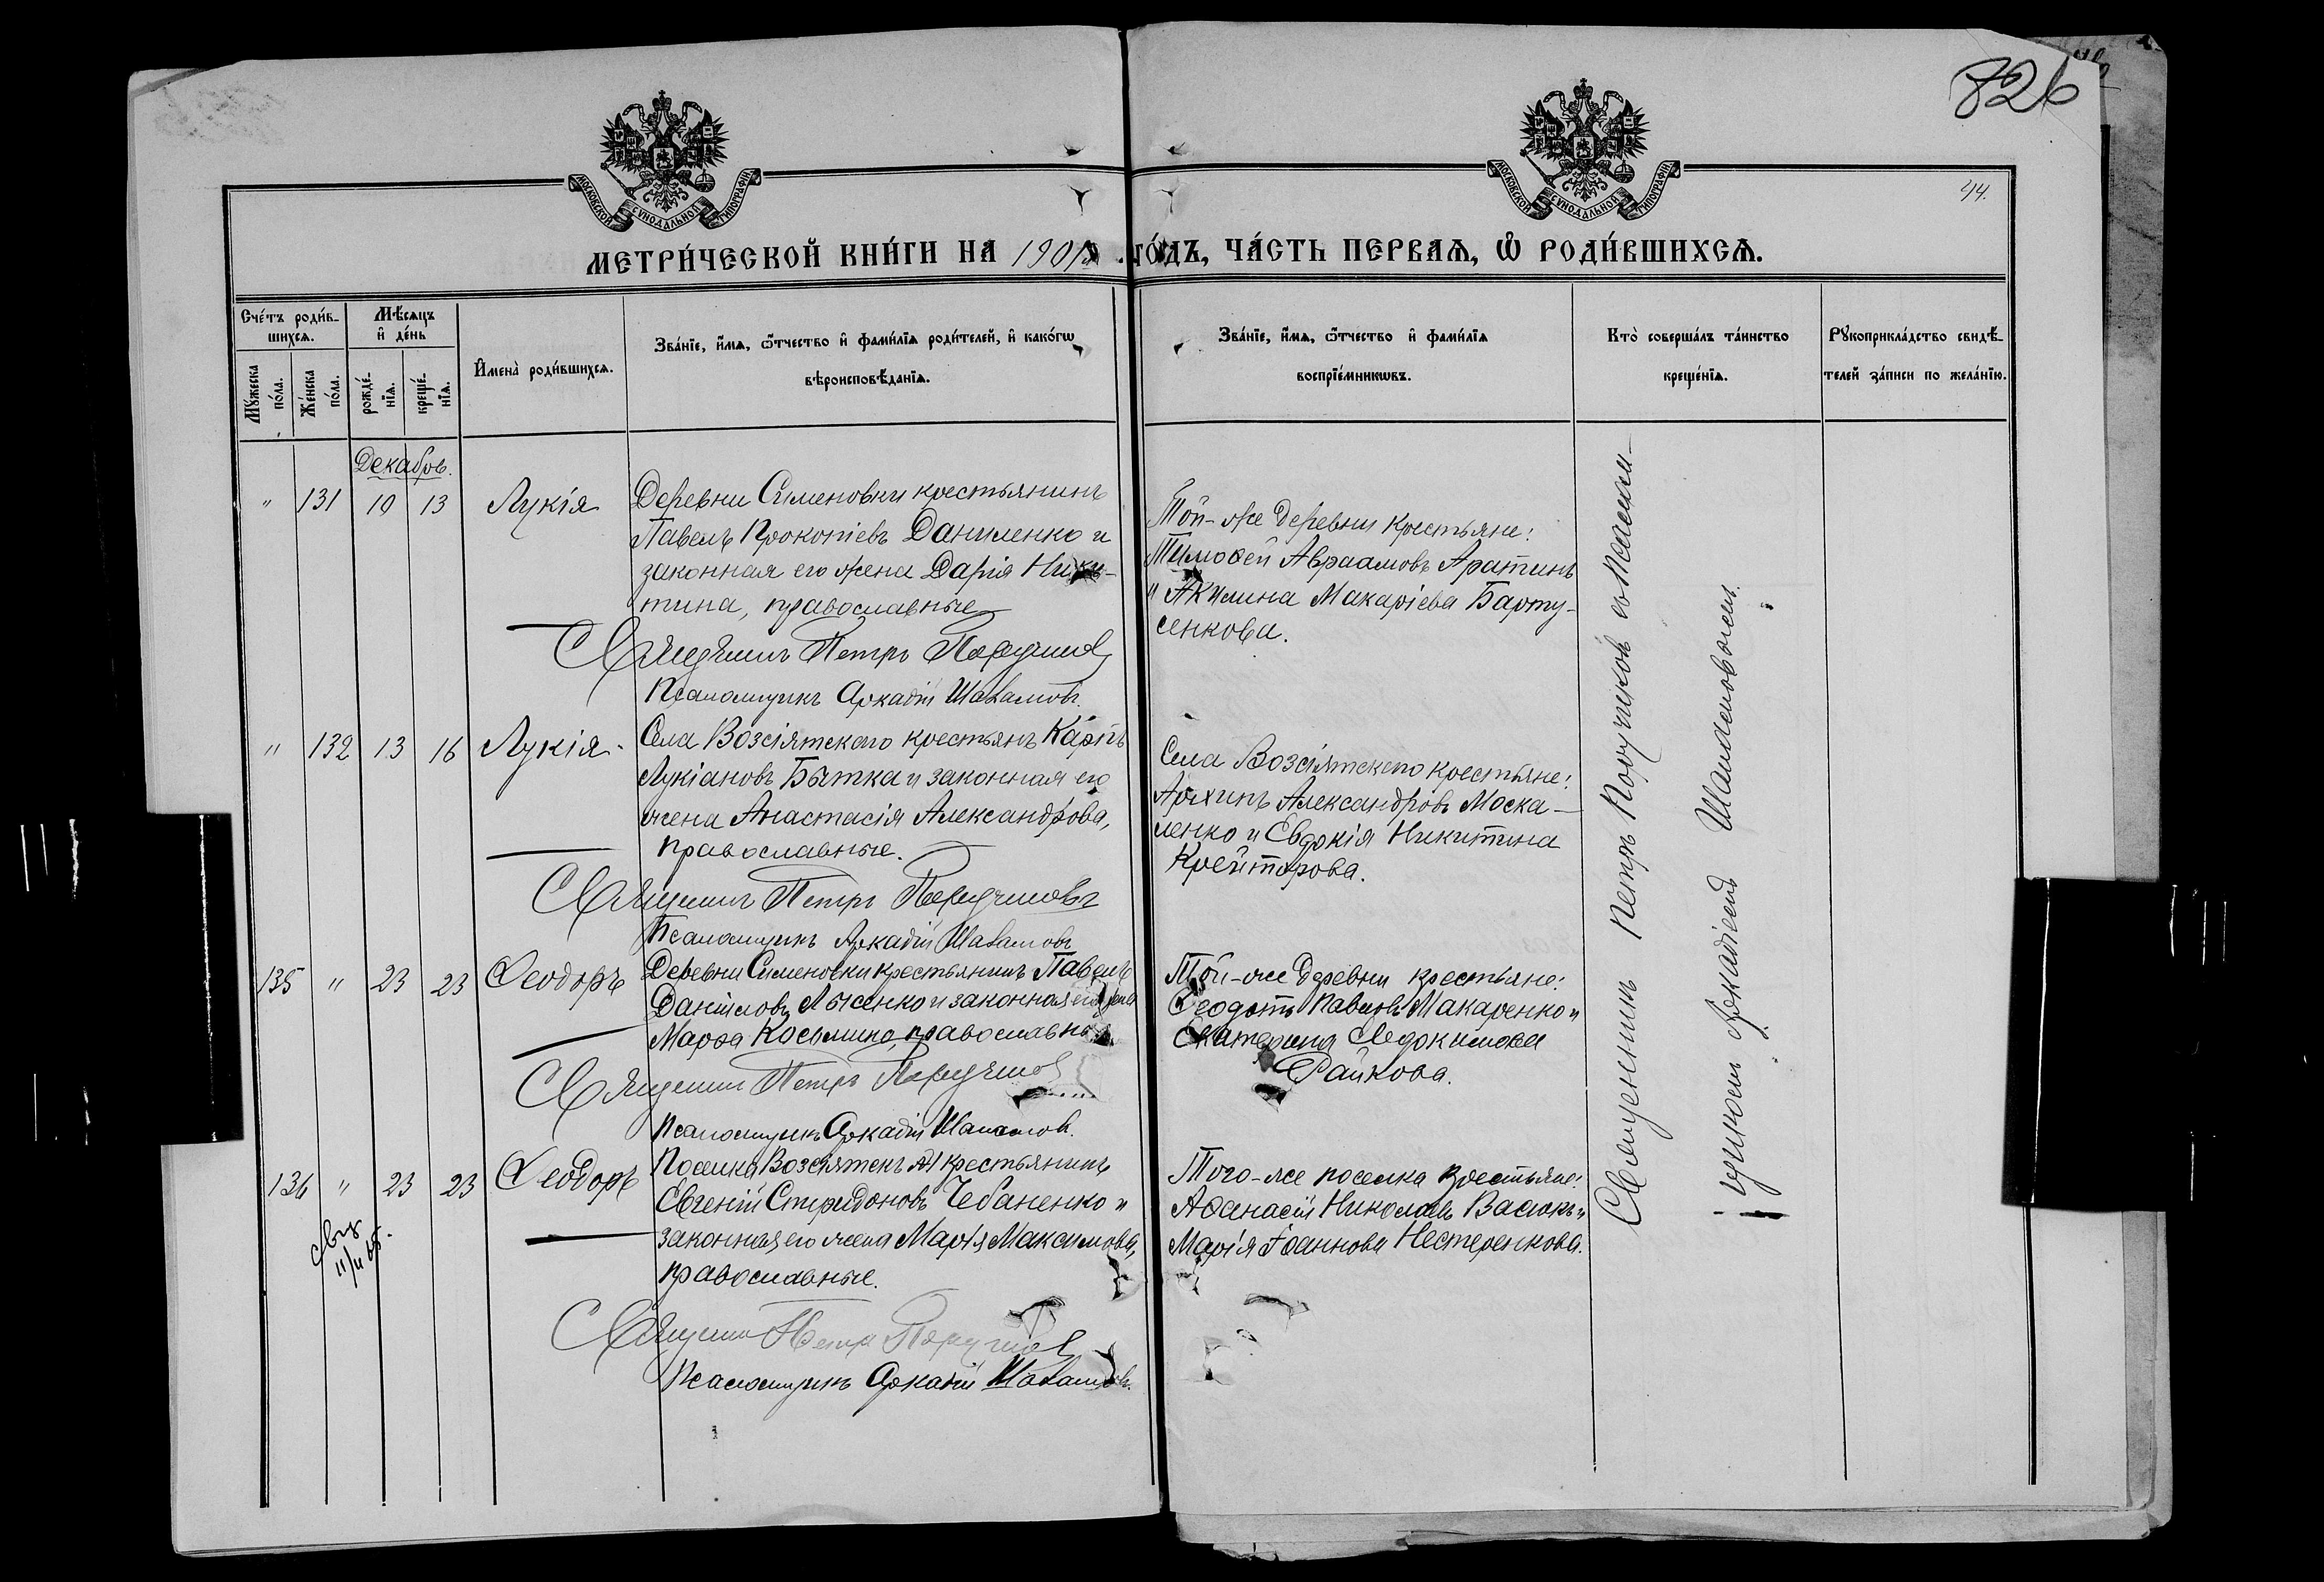 826
44.
МОСКОВСКОЙ СУНОДАЛЬНОЙ ТИПОГРАФІИ
МОСКОВСКОЙ СУНОДАЛЬНОЙ ТИПОГРАФІИ
МЕТРИ́ЧЕСКОЙ КНИ́ГИ НА 190 ГО́ДЪ, ЧА́СТЬ ПЕРВАѦ, Ѿ РОДИ́ВШИХСѦ.
Сче́тъ роди́в-
шихсѧ.
Мꙋжеска по́ла.
Же́нска по́ла.
Мѣ́сѧцъ
и҆ де́нь
рожде́-
нїѧ.
креще́-
нїѧ.
И҆мена̀ роди́вшихсѧ.
Зва́нїе, и҆́мѧ, ѻ҆́тчество и҆ фами́лїѧ роди́телей, и҆ како́гѡ
вѣроисповѣ́данїѧ.
Зва́нїе, и҆́мѧ, ѻ҆́тчество и҆ фами́лїѧ
воспрїе́мникѡвъ.
Кто̀ соверша́лъ та́инство
креще́нїѧ.
Рꙋкоприкла́дство свидѣ́-
телей за́писи по жела́нїю.
Декабрь.
" 131 10 13 Лукія
Деревни Сименовки крестьянинъ
Павелъ Прокопіевъ Даниленко и
законная его жена Дарія Ники-
тина, православные
Священникъ Петръ Поручиковъ
Псаломщикъ Аркадій
Той-же деревни крестьяне:
Тимоѳей Авраамовъ Аратинъ
и Акилина Макаріева Барту-
сенкова.
" 132 13 16 Лукія
Села Возсіятскаго крестьянъ Карпъ
Лукіановъ Бытка и законная его
жена Анастасія Александрова,
православные.
Священникъ Петръ Поручиковъ
Псаломщикъ Аркадій
Села Возсіятскаго крестьяне:
Архипъ Александровъ Моска-
ленко и Евдокія Никитина
Крейторова.
135 " 23 23 Ѳеодоръ
Деревни Сименовки крестьянинъ Павелъ
Даніиловъ Лысенко и законная его жена
Марѳа Косьмина, православные
Священникъ Петръ Поручиковъ
Псаломщикъ Аркадій
Той-же деревни крестьяне:
Ѳеодотъ Павловъ Макаренко и
Екатерина Евдокимова
Райкова.
136 " 23 23 Ѳеодоръ
Поселка Возсіятскъ крестьянинъ
Евгеній Спиридоновъ Чебаненко и
законная его жена Марія Максимова,
православные.
Священникъ Петръ Поручиковъ
Псаломщикъ Аркадій
Того-же поселка крестьяне:
Аѳанасій Николаевъ Васюкъ и
Марія Іоаннова Нестеренкова.
Священникъ Петръ Поручиковъ съ Псалом-
щикомъ Аркадіемъ